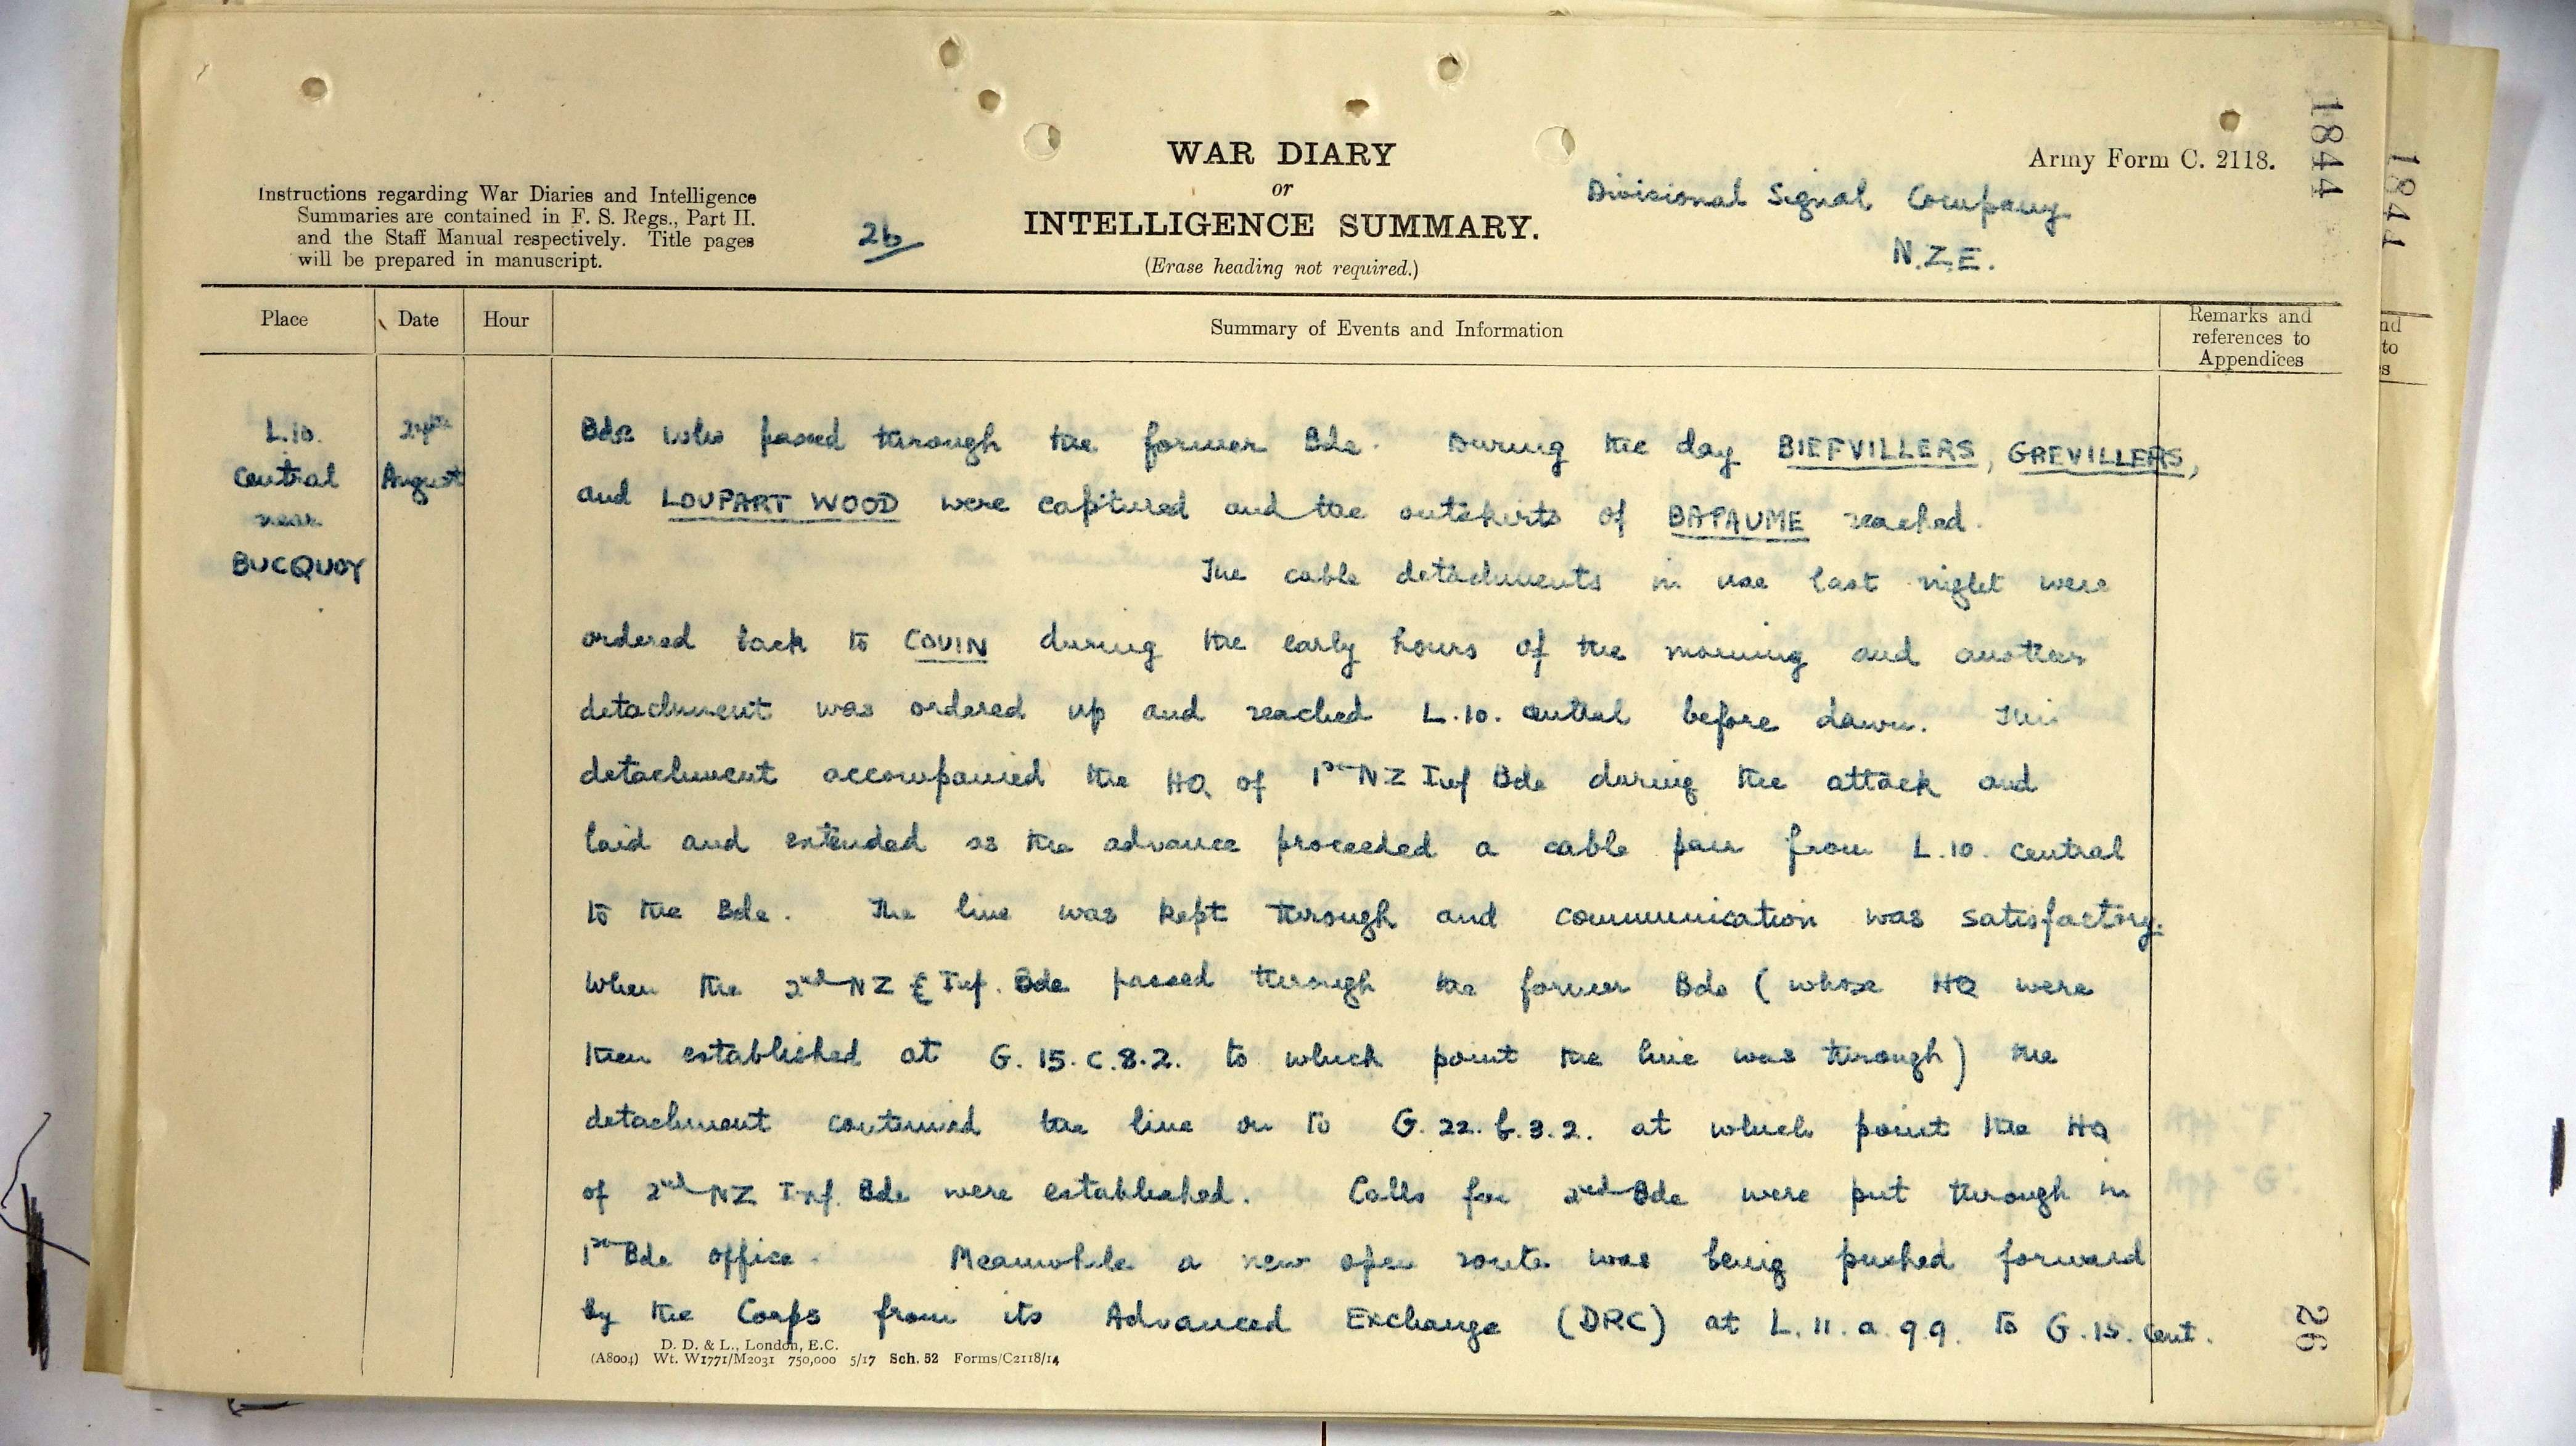 WAR DIARY
or
INTELLIGENCE SUMMARY.
(Erase heading not required.)
Instructions regarding War Diaries and Intelligence
Summaries are contained in F. S. Regs., Part II.
and the Staff Manual respectively. Title pages
will be prepared in manuscript.
26
Army Form C. 2118.
Divisional Signal Company
N.Z.E.
1844
1841
Place
Date
Hour
Summary of Events and Information
Remarks and
references to
Appendices
nd
to
s
L.10.
Central
near
BUCQUOY
24th
August
Bde who passed through the former Bde. During the day BIEFVILLERS, GREVILLERS,
and LOUPART WOOD were captured and the outskirts of BAPAUME reached.
The cable detachments in use last night were
ordered back to COUIN during the early hours of the morning and another
detachment was ordered up and reached L.10. central before dawn. This
detachment accompanied the HQ of 1st NZ Inf Bde during the attack and
laid and extended as the advance proceeded a cable pair from L.10. central
to the Bde. The line was kept through and communication was satisfactory.
When the 2nd NZ Inf. Bde passed through the former Bde (whose HQ were
then established at G.15.c.8.2. to which point the line was through) the
detachment continued the line on to G.22.b.3.2. at which point the HQ
of 2nd NZ Inf. Bde were established. Calls for 2nd Bde were put through in
1st Bde office. Meanwhile a new open route was being pushed forward
by the Corps from its Advanced Exchange (DRC) at L.11.a.9.9. to G.15. cent.
D. D. & L., London, E.C.
(A8004) Wt. W1771/M2031 750,000 5/17 Sch. 52 Forms/C2118/14
26